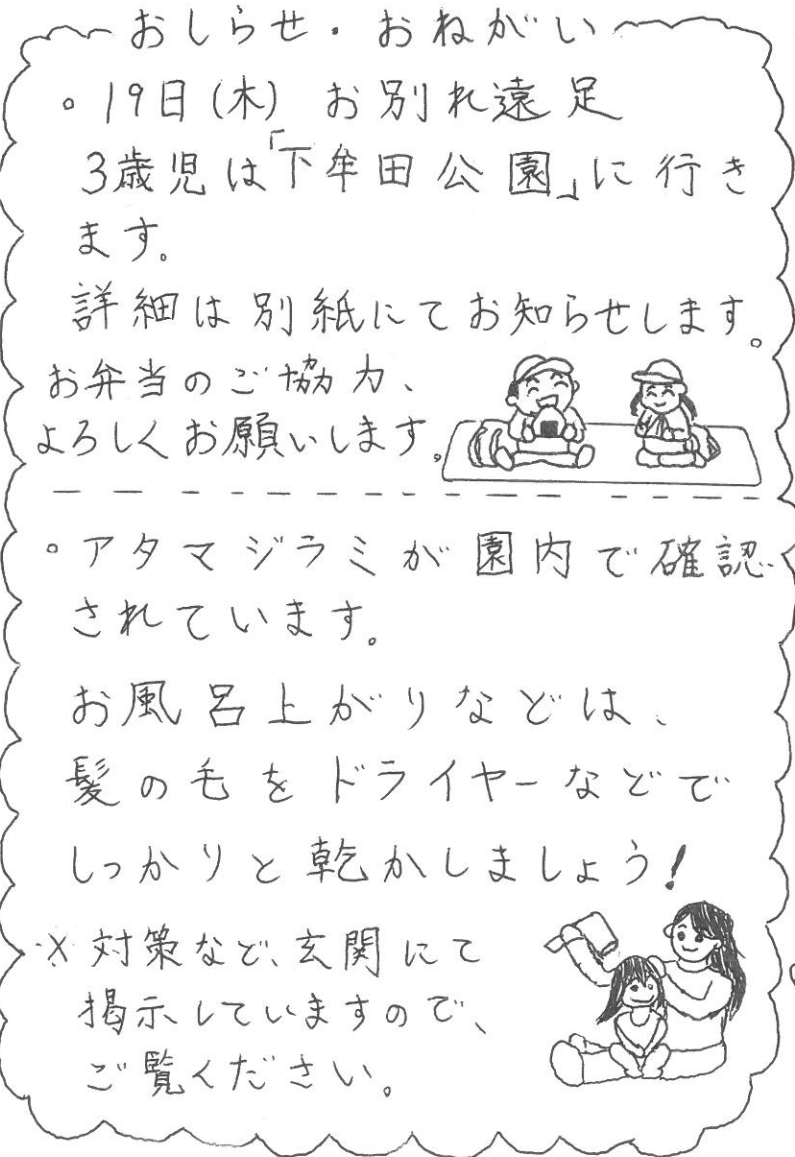 おしらせ・おねがい
。19日(木) お別れ遠足
3歳児は「下牟田公園」に行き
ます。
詳細は別紙にてお知らせします。
お弁当のご協力、
よろしくお願いします。
。アタマジラミが園内で確認
されています。
お風呂上がりなどは、
髪の毛をドライヤーなどで
しっかりと乾かしましょう!
※対策など、玄関にて
掲示していますので、
ご覧ください。